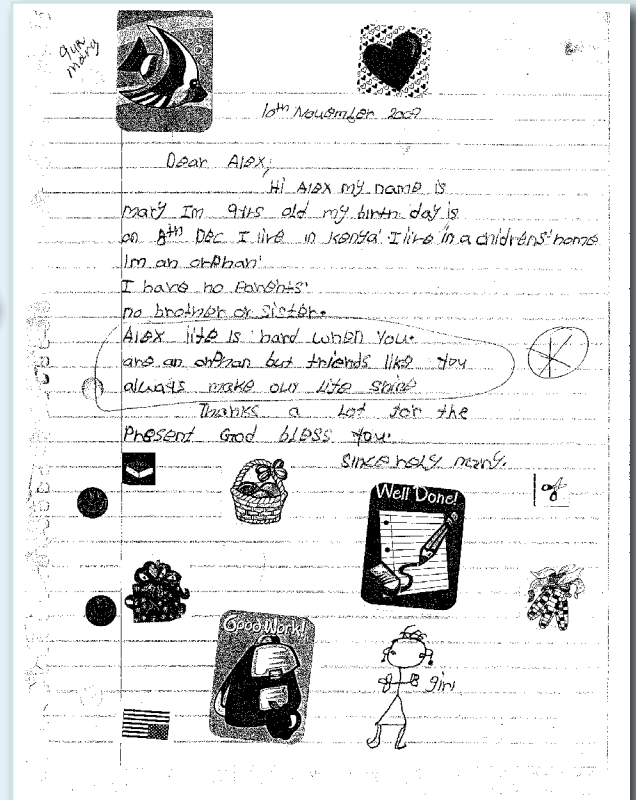 9yrs
mary
10th November 2009
Dear Alex,
Hi Alex my name is
mary Im 9yrs old my birth day is
on 8th Dec I live in Kenya I live in a childrens' home
Im an orphan
I have no Parents
no brother or sister.
Alex life is hard when you.
are an orphan but friends like you
always make our life shine
Thanks a Lot for the
Present God bless you.
sincerely mary.
Well Done!
Good Work!
girl